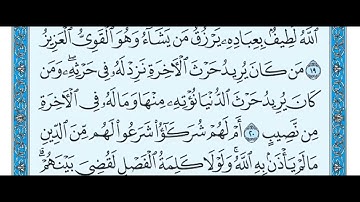 ٱللَّهُ لَطِيفُۢ بِعِبَادِهِۦ يَرْزُقُ مَن يَشَآءُ وَهُوَ ٱلْقَوِىُّ ٱلْعَزِيزُ
١٩ مَن كَانَ يُرِيدُ حَرْثَ ٱلْأَخِرَةِ نَزِدْ لَهُۥ فِى حَرْثِهِۦ وَمَن
كَانَ يُرِيدُ حَرْثَ ٱلدُّنْيَا نُؤْتِهِۦ مِنْهَا وَمَا لَهُۥ فِى ٱلْأَخِرَةِ
مِن نَّصِيبٍ ٢٠ أَمْ لَهُمْ شُرَكَٰٓؤُا۟ شَرَعُوا۟ لَهُم مِّنَ ٱلدِّينِ
مَا لَمْ يَأْذَنۢ بِهِ ٱللَّهُ وَلَوْلَا كَلِمَةُ ٱلْفَصْلِ لَقُضِىَ بَيْنَهُمْ